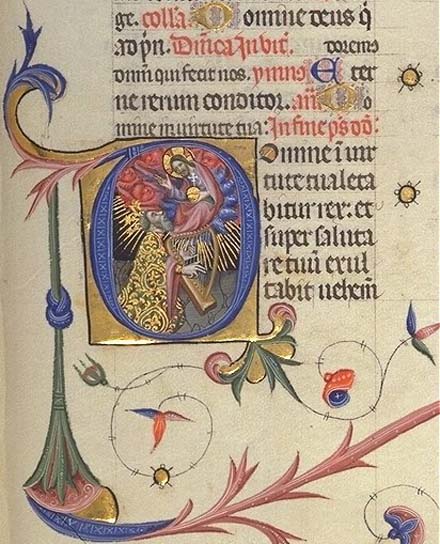 ge. colla. Domine deus q̄
ad ꝓn. Dn̄ica īubil'. torem
dnm̄ qui fecit nos. ymnꝰ Eter
ne rerum conditor. an̄ Do
mine in uirtute tua: In finē ps̄ d̄d:
Domine ī uir
tute tua leta
bitur rex: et
super saluta
re tuū exul
tabit uehem̄